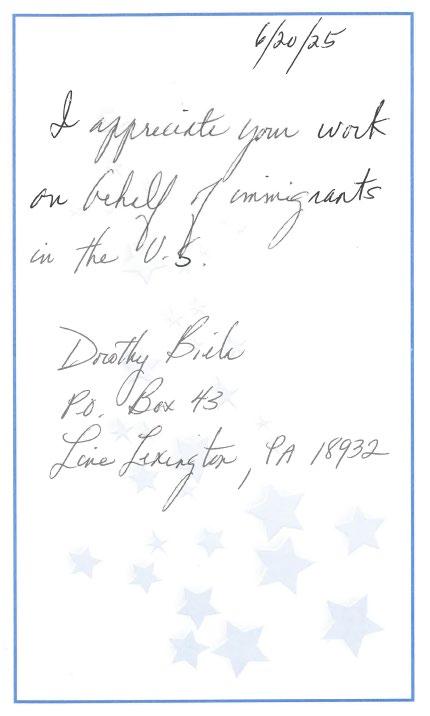 6/20/25
I appreciate your work
on behalf of immigrants
in the U.S.
Dorothy Biela
P.O. Box 43
Line Lexington, PA 18932